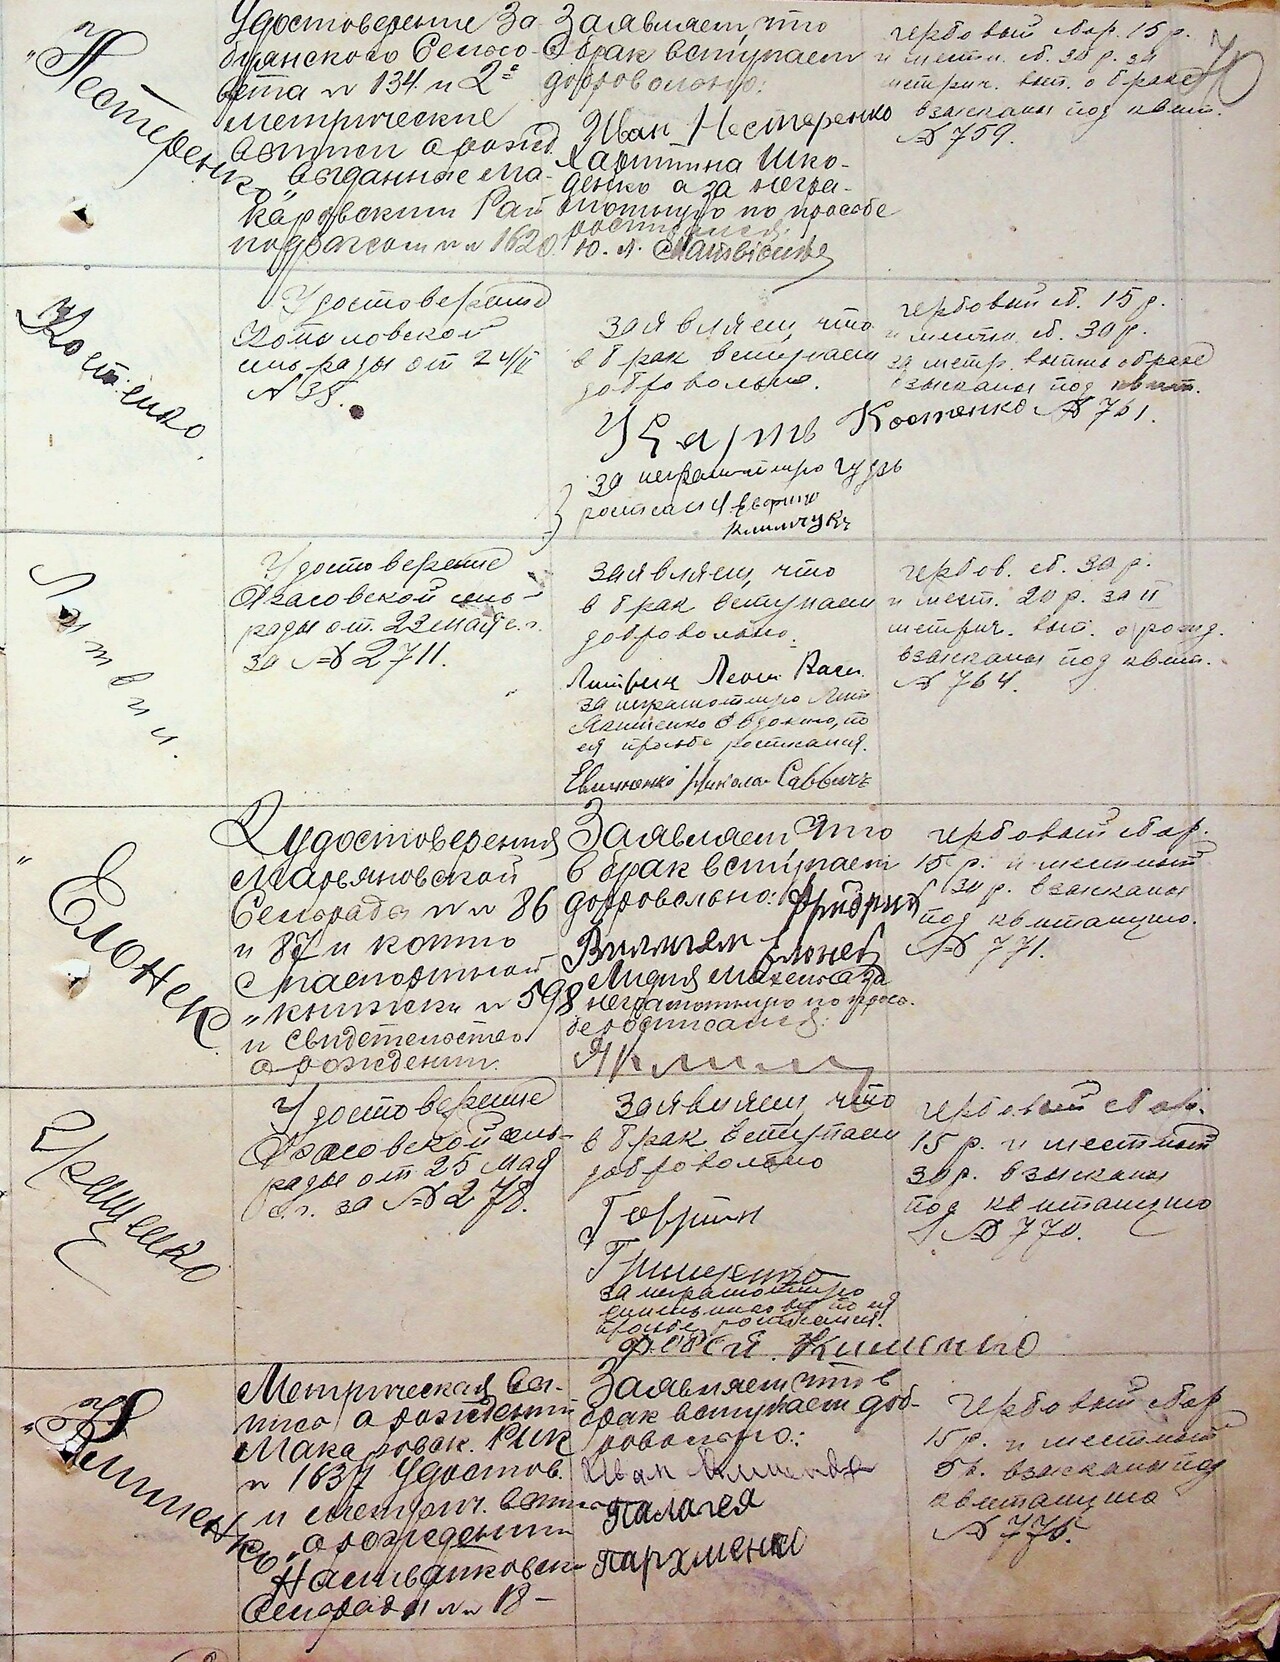 70
"Нестеренко"
Удостоверение За
бянского Сельсо-
вета № 134 и 2е
метрические
выписи о рожд.
выданные Ма-
каровским Рай
№№ 1620
Заявляем, что
в брак вступаем
добровольно:
Иван Нестеренко
Шко-
денко а за негра-
мотную по просьбе
росписался:
гербовый сбор. 15 р.
и местн. сб. 30 р. за
метрич. вып. о браке
взысканы под квит.
№ 759.
Костенко.
Удостоверение
сель-рады от 24/II
№ 35.
Заявляем, что
в брак вступаем
добровольно.
Костенко
за неграмотную Гудзь
росписался
Климчукъ
гербовый сб. 15 р.
и местн. сб. 30 р.
за метр. выпись о браке
взысканы под квит.
№ 761.
Литвин.
Удостоверение
сель-
рады от 23 мая с.г.
за № 2711.
Заявляем, что
в брак вступаем
добровольно.
Литвин Леонт.
за неграмотную
Якименко Евдокию, по
ея просьбе росписался.
Николай Саввичъ
гербов. сб. 30 р.
и мест. 20 р. за II
метрич. вып. о рожд.
взысканы под квит.
№ 764.
"Елонек
2 удостоверения
Марьяновской
Сельрады №№ 86
и 87 и копию
паспортной
книжки № 598
и свидетельство
о рождении.
Заявляем, что
в брак вступаем
добровольно: Фридрих
Вильгельм Елонек
Лидия а за
неграмотную по прось-
бе росписался:
гербовый сбор.
15 р. и местный
30 р. взысканы
под квитанцию.
№ 771.
Грищенко
Удостоверение
сель-
рады от 25 мая
с.г. за № 278.
Заявляем, что
в брак вступаем
добровольно
Гришценко
за неграмотную
по ея
просьбе росписался.
гербовый сбор.
15 р. и местный
30 р. взысканы
под квитанцию
№ 770.
Метрическая вы-
пись о рождении
Макаровск. РИК
№ 1637 Удостов.
и метрич. выпись
о рождении
Сельрады №№ 18 –
Заявляем, что в
брак вступаем доб-
ровольно:
Иван
Палагея
Пархменко
гербовый сбор
15 р. и местный
взысканы под
квитанцию
№ 775.